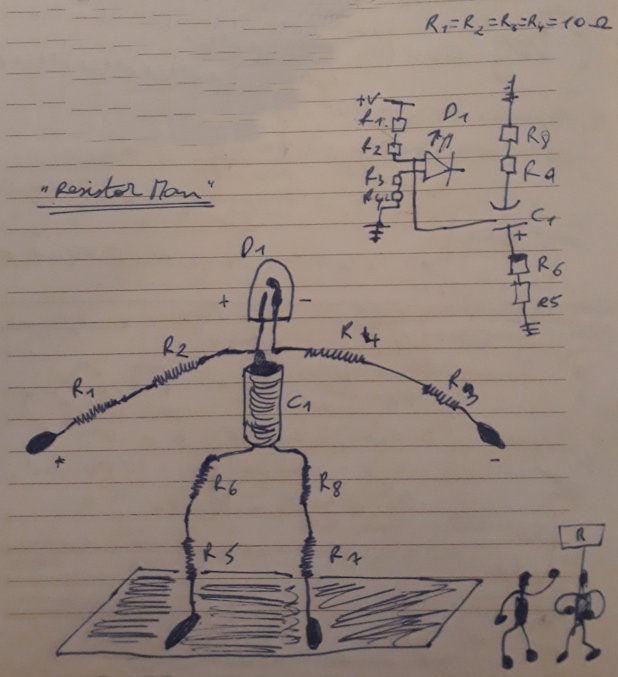 R1=R2=R3=R4=10Ω
+V
D1
R1
R2
R3
R4
R9
R9
C1
+
R6
R5
"Resistor Man"
D1
+ -
R2
R4
R1
R3
C1
+
-
R6
R8
R5
R7
R